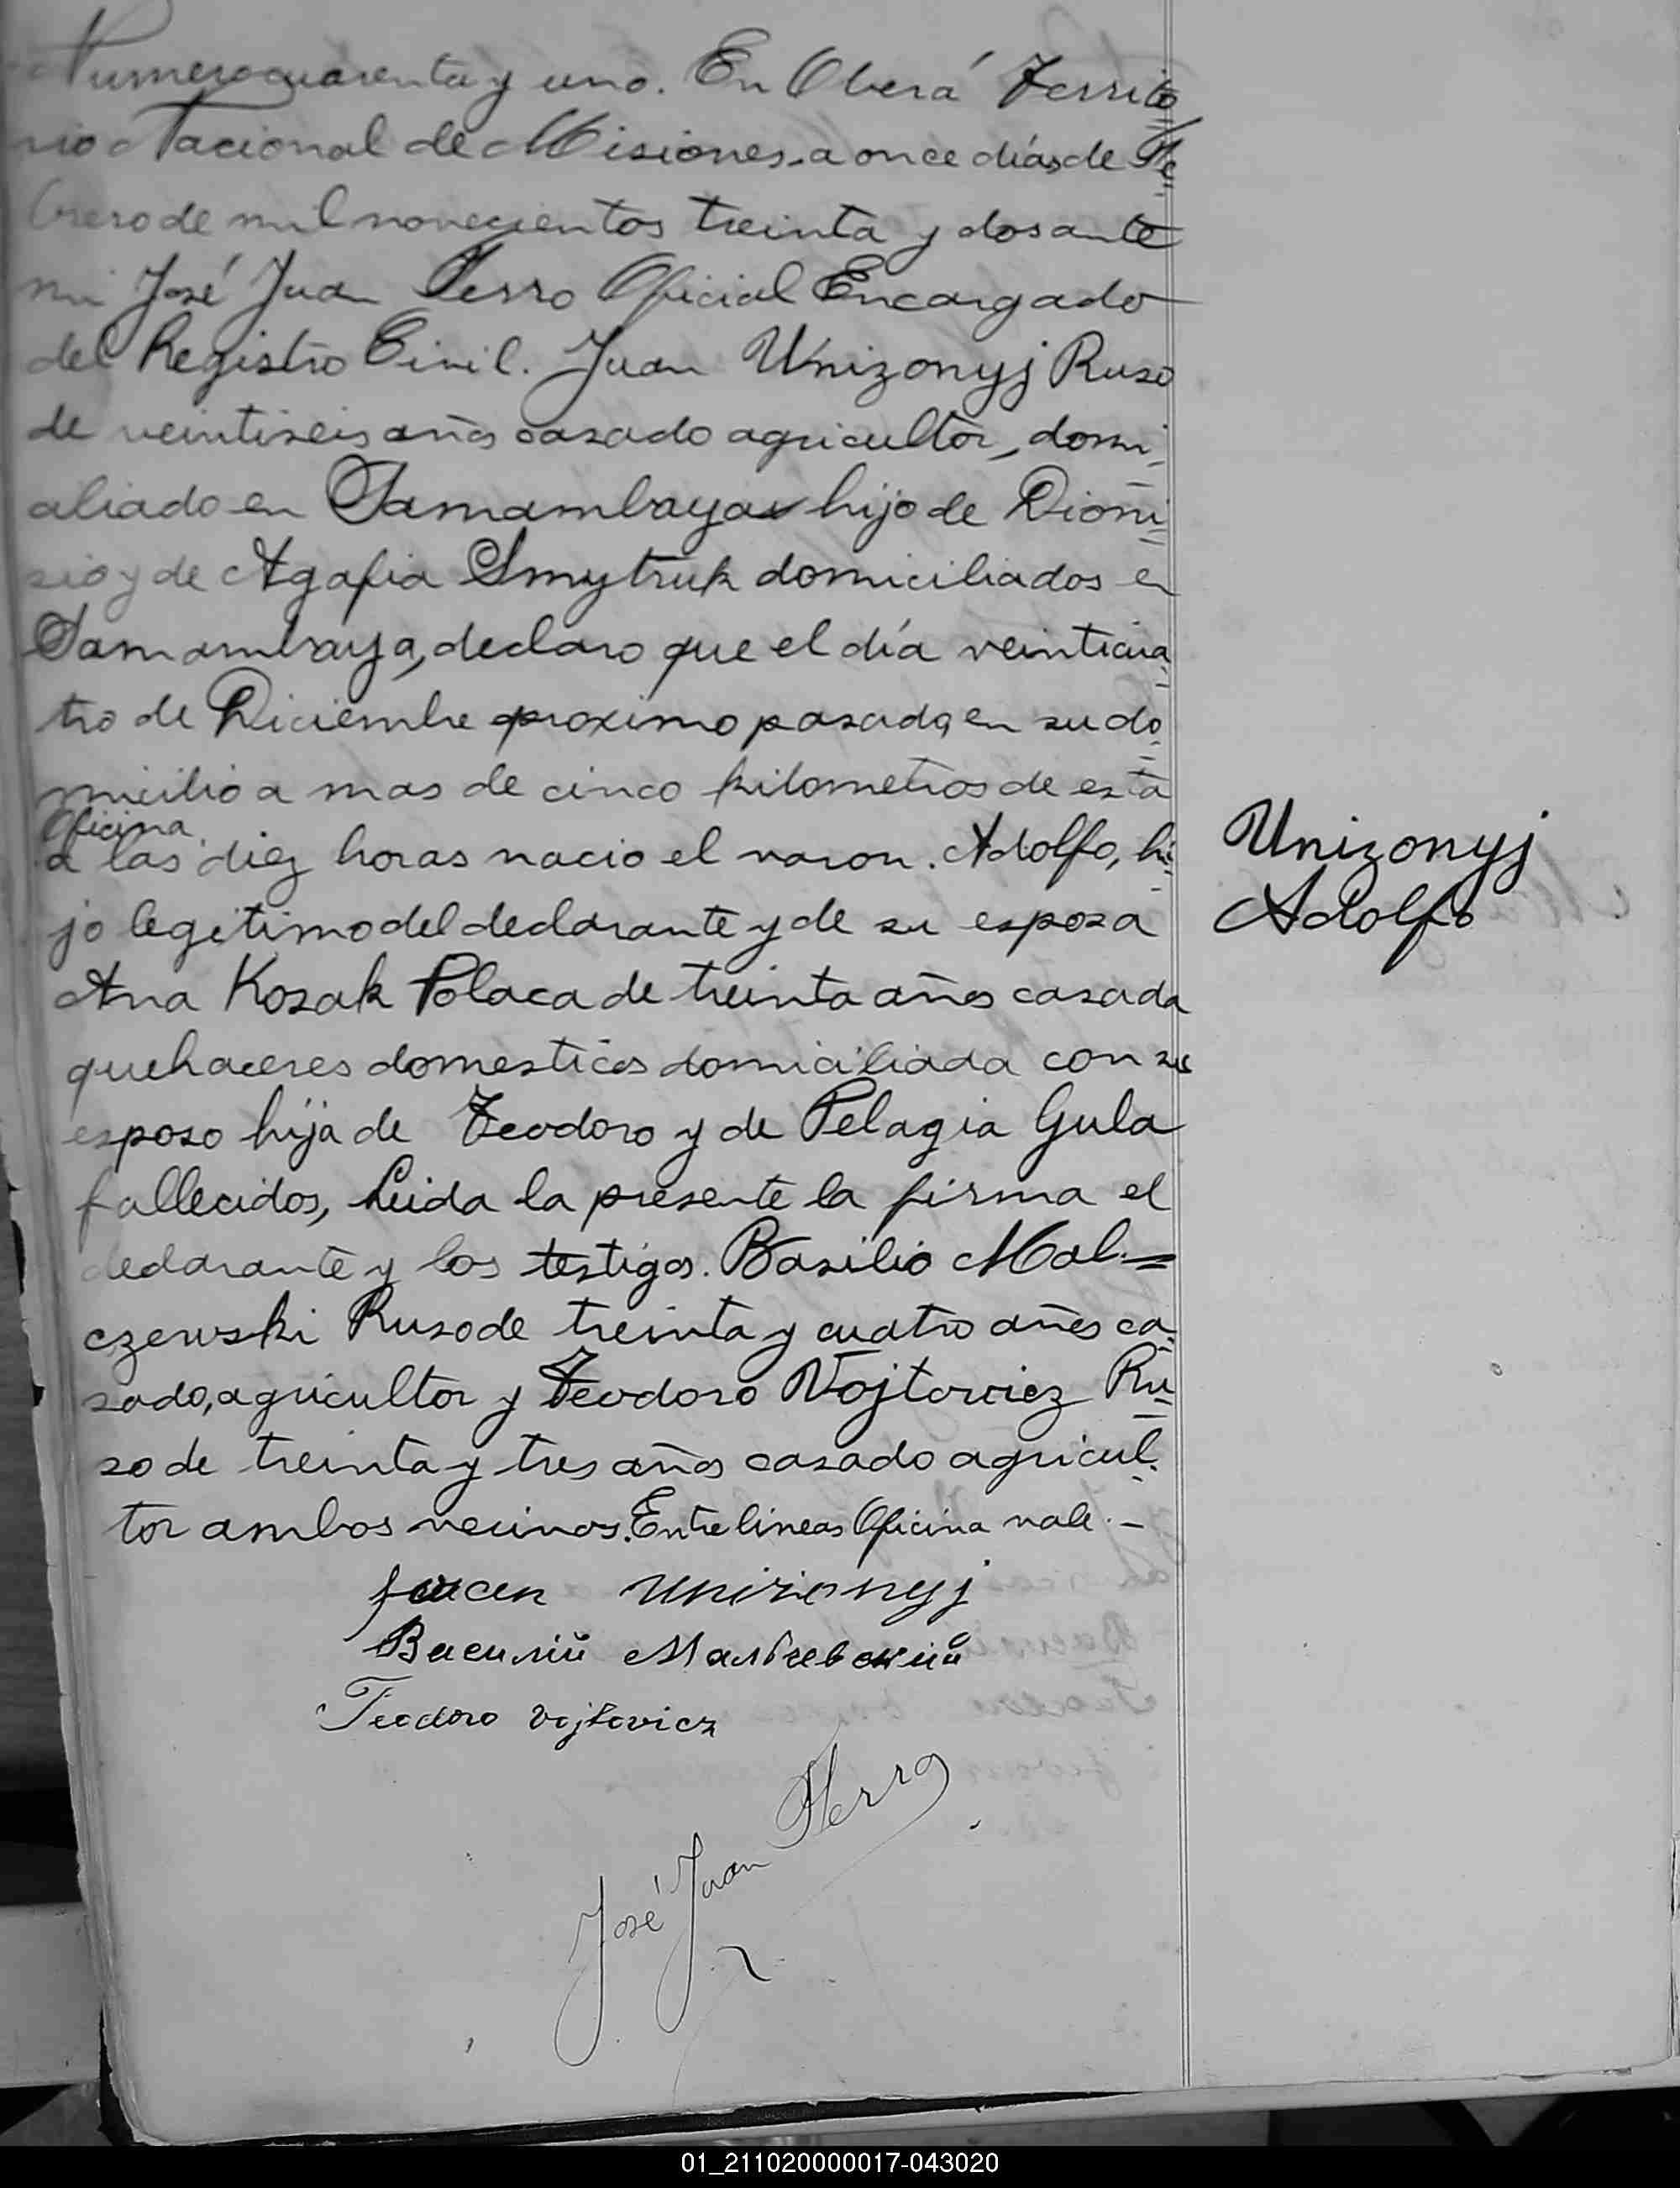 Numero cuarenta y uno. En Oberá Territo
rio Nacional de Misiones, a once días de Fe
brero de mil novecientos treinta y dos ante
mi José Juan Serro Oficial Encargado
del Registro Civil. Juan Unizonyj Ruso
de veintiseis años casado agricultor, domi
ciliado en Samambaya hijo de Dioni
sio y de Agafia Smytruk domiciliados en
Samambaya, declaro que el día veinticua
tro de Diciembre proximo pasado, en su do
micilio a mas de cinco kilometros de esta
Oficina
a las diez horas nacio el varon. Adolfo, hi
jo legitimo del declarante y de su esposa
Ana Kozak Polaca de treinta años casada
quehaceres domesticos domiciliada con su
esposo hija de Teodoro y de Pelagia Gula
fallecidos, Leida la presente la firma el
declarante y los testigos. Basilio Mal=
czewski Ruso de treinta y cuatro años ca
sado, agricultor y Teodoro Vojtowicz Ru
so de treinta y tres años casado agricul
tor ambos vecinos. Entre lineas Oficina vale. -
Unizonyj
Adolfo
Juan Unizonyj
Василий Мальчевский
Teodoro Vojtovicz
José Juan
01_211020000017-043020